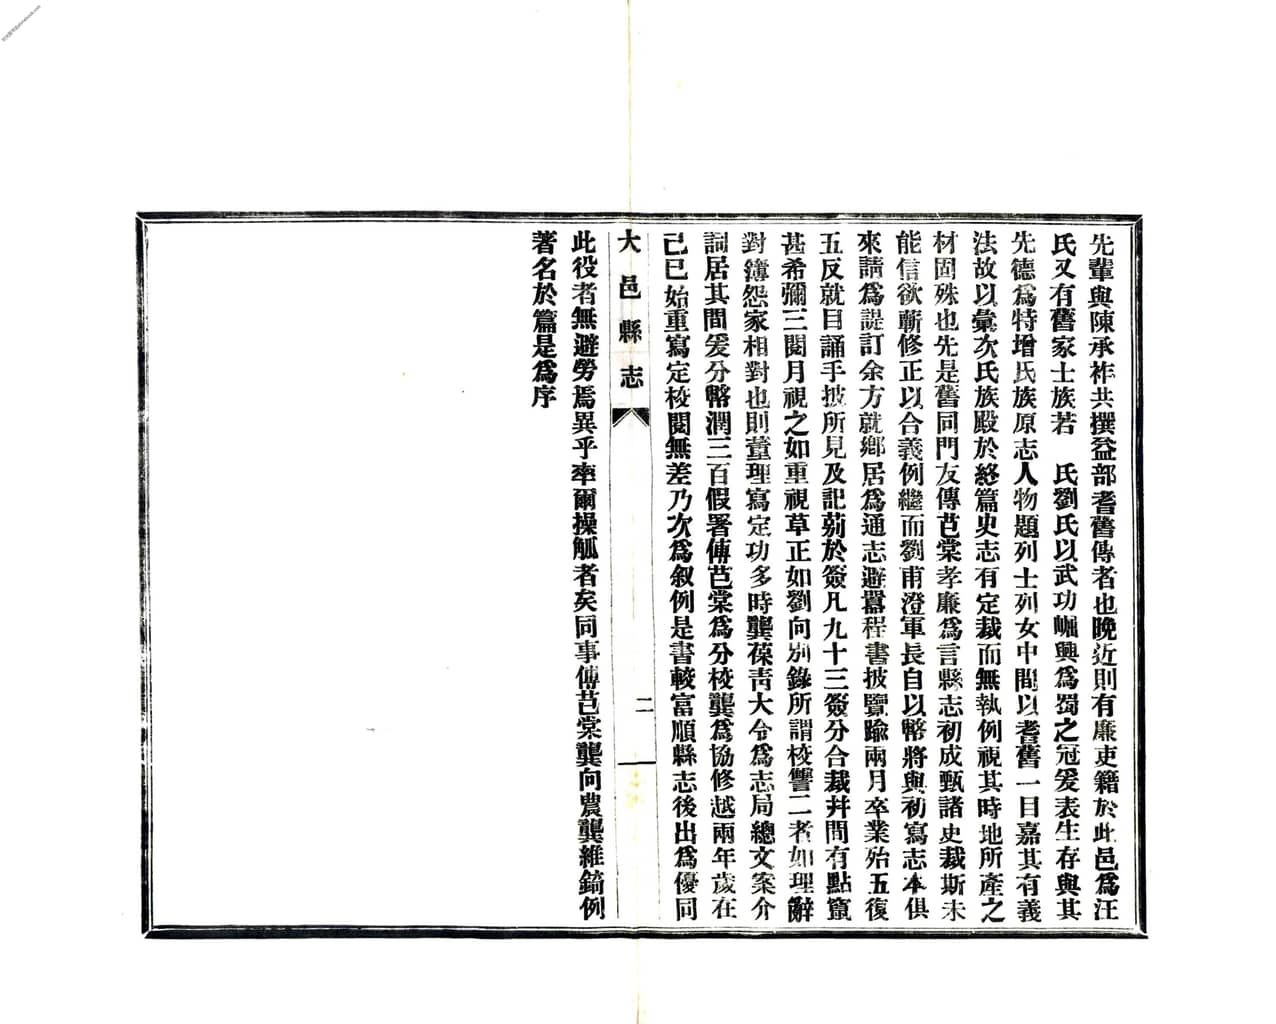 先輩與陳承祚共撰益部耆舊傳者也晚近則有廉吏籍於此邑爲汪
氏又有舊家士族若　氏劉氏以武功崛興爲蜀之冠爰表生存與其
先德爲特增氏族原志人物題列士列女中間以耆舊一目嘉其有義
法故以彙次氏族殿於終篇史志有定裁而無執例視其時地所產之
材固殊也先是舊同門友傅芑棠孝廉爲言縣志初成甄諸史裁斯未
能信欲蘄修正以合義例繼而劉甫澄軍長自以幣將與初寫志本俱
來請爲諟訂余方就鄉居爲通志避囂程書披覽踰兩月卒業殆五復
五反就目誦手披所見及記剳於簽凡九十三簽分合裁并間有點竄
甚希彌三閱月視之如重視草正如劉向別錄所謂校讐二者如理辭
對簿怨家相對也則董理寫定功多時龔葆青大令爲志局總文案介
詞居其間爰分幣潤三百假署傅芑棠爲分校龔爲協修越兩年歲在
己巳始重寫定校閱無差乃次爲叙例是書較富順縣志後出爲優同
大邑縣志
二
此役者無避勞焉異乎率爾操觚者矣同事傅芑棠龔向農龔維錡例
著名於篇是爲序